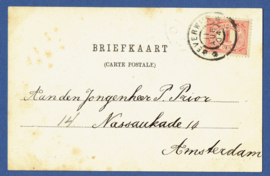 BRIEFKAART
(CARTE POSTALE)
Aan den Jongenheer P. Prior
14 Nassaukade 14
Amsterdam